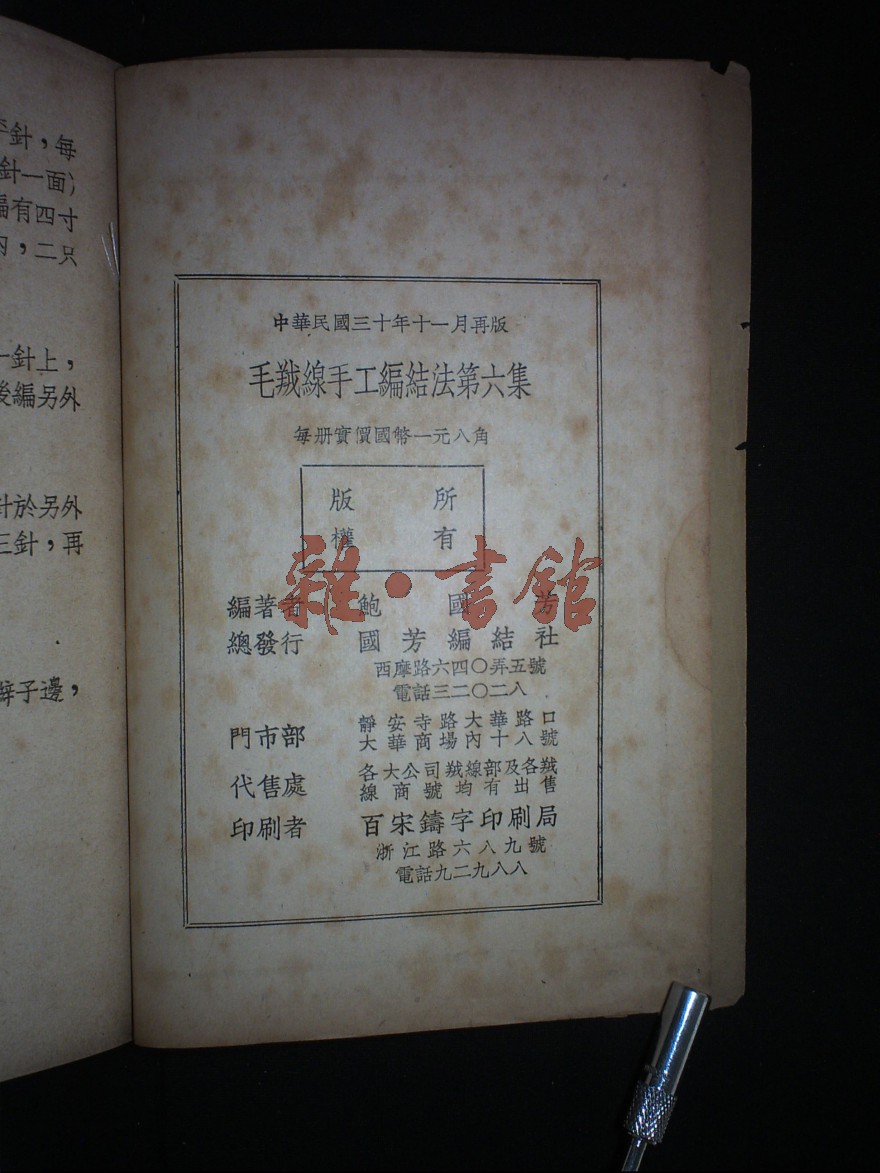 針，每
針一面）
編有四寸
內，二只
一針上，
後編另外
針於另外
三針，再
辮子邊，
中華民國三十年十一月再版
毛羢線手工編結法第六集
每册實價國幣一元八角
版 所
權 有
雜·書館
編著者 鮑國芳
總發行 國芳編結社
西摩路六四〇弄五號
電話三二〇二八
門市部 靜安寺路大華路口
大華商場內十八號
代售處 各大公司羢線部及各羢
線商號均有出售
印刷者 百宋鑄字印刷局
浙江路六八九號
電話九二九八八